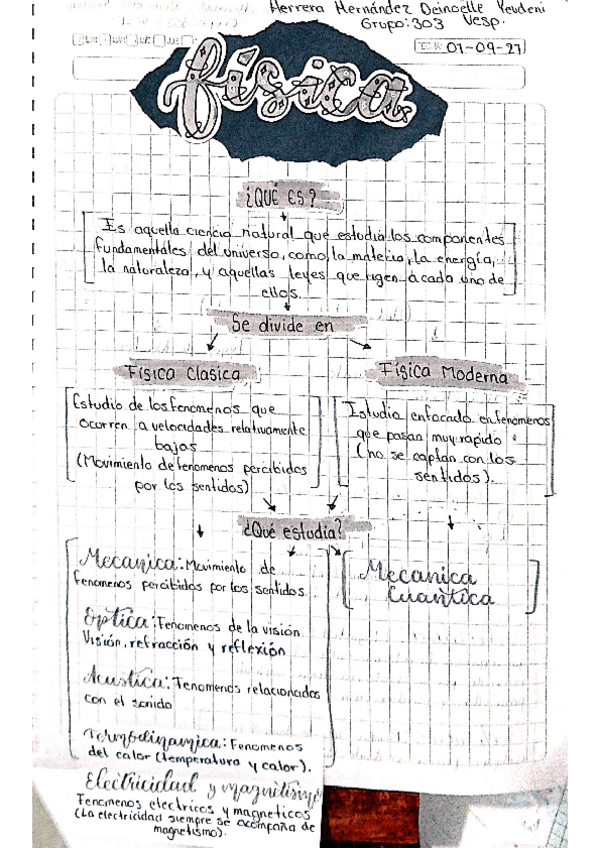 Herrera Hernández Deinoelle Yeudeni
Grupo: 303 Vesp.
01-09-21
física
¿QUÉ ES?
Es aquella ciencia natural que estudia los componentes
fundamentales del universo, como la materia, la energía,
la naturaleza, y aquellas leyes que rigen a cada uno de
ellos.
Se divide en
Física Clasica
Estudio de los fenomenos que
ocurren a velocidades relativamente
bajas
(Movimiento de fenomenos percibidos
por los sentidos)
Física Moderna
Estudia enfocado en fenomenos
que pasan muy rapido
(no se captan con los
sentidos).
¿Qué estudia?
Mecanica: Movimiento de
fenomenos percibidos por los sentidos
Optica: Fenomenos de la visión
Visión, refracción y reflexión
Acustica: Fenomenos relacionados
con el sonido
Termodinamica: Fenomenos
del calor (temperatura y calor).
Electricidad y magnetismo
Fenomenos electricos y magneticos
(La electricidad siempre se acompaña de
magnetismo).
Mecanica
Cuantica